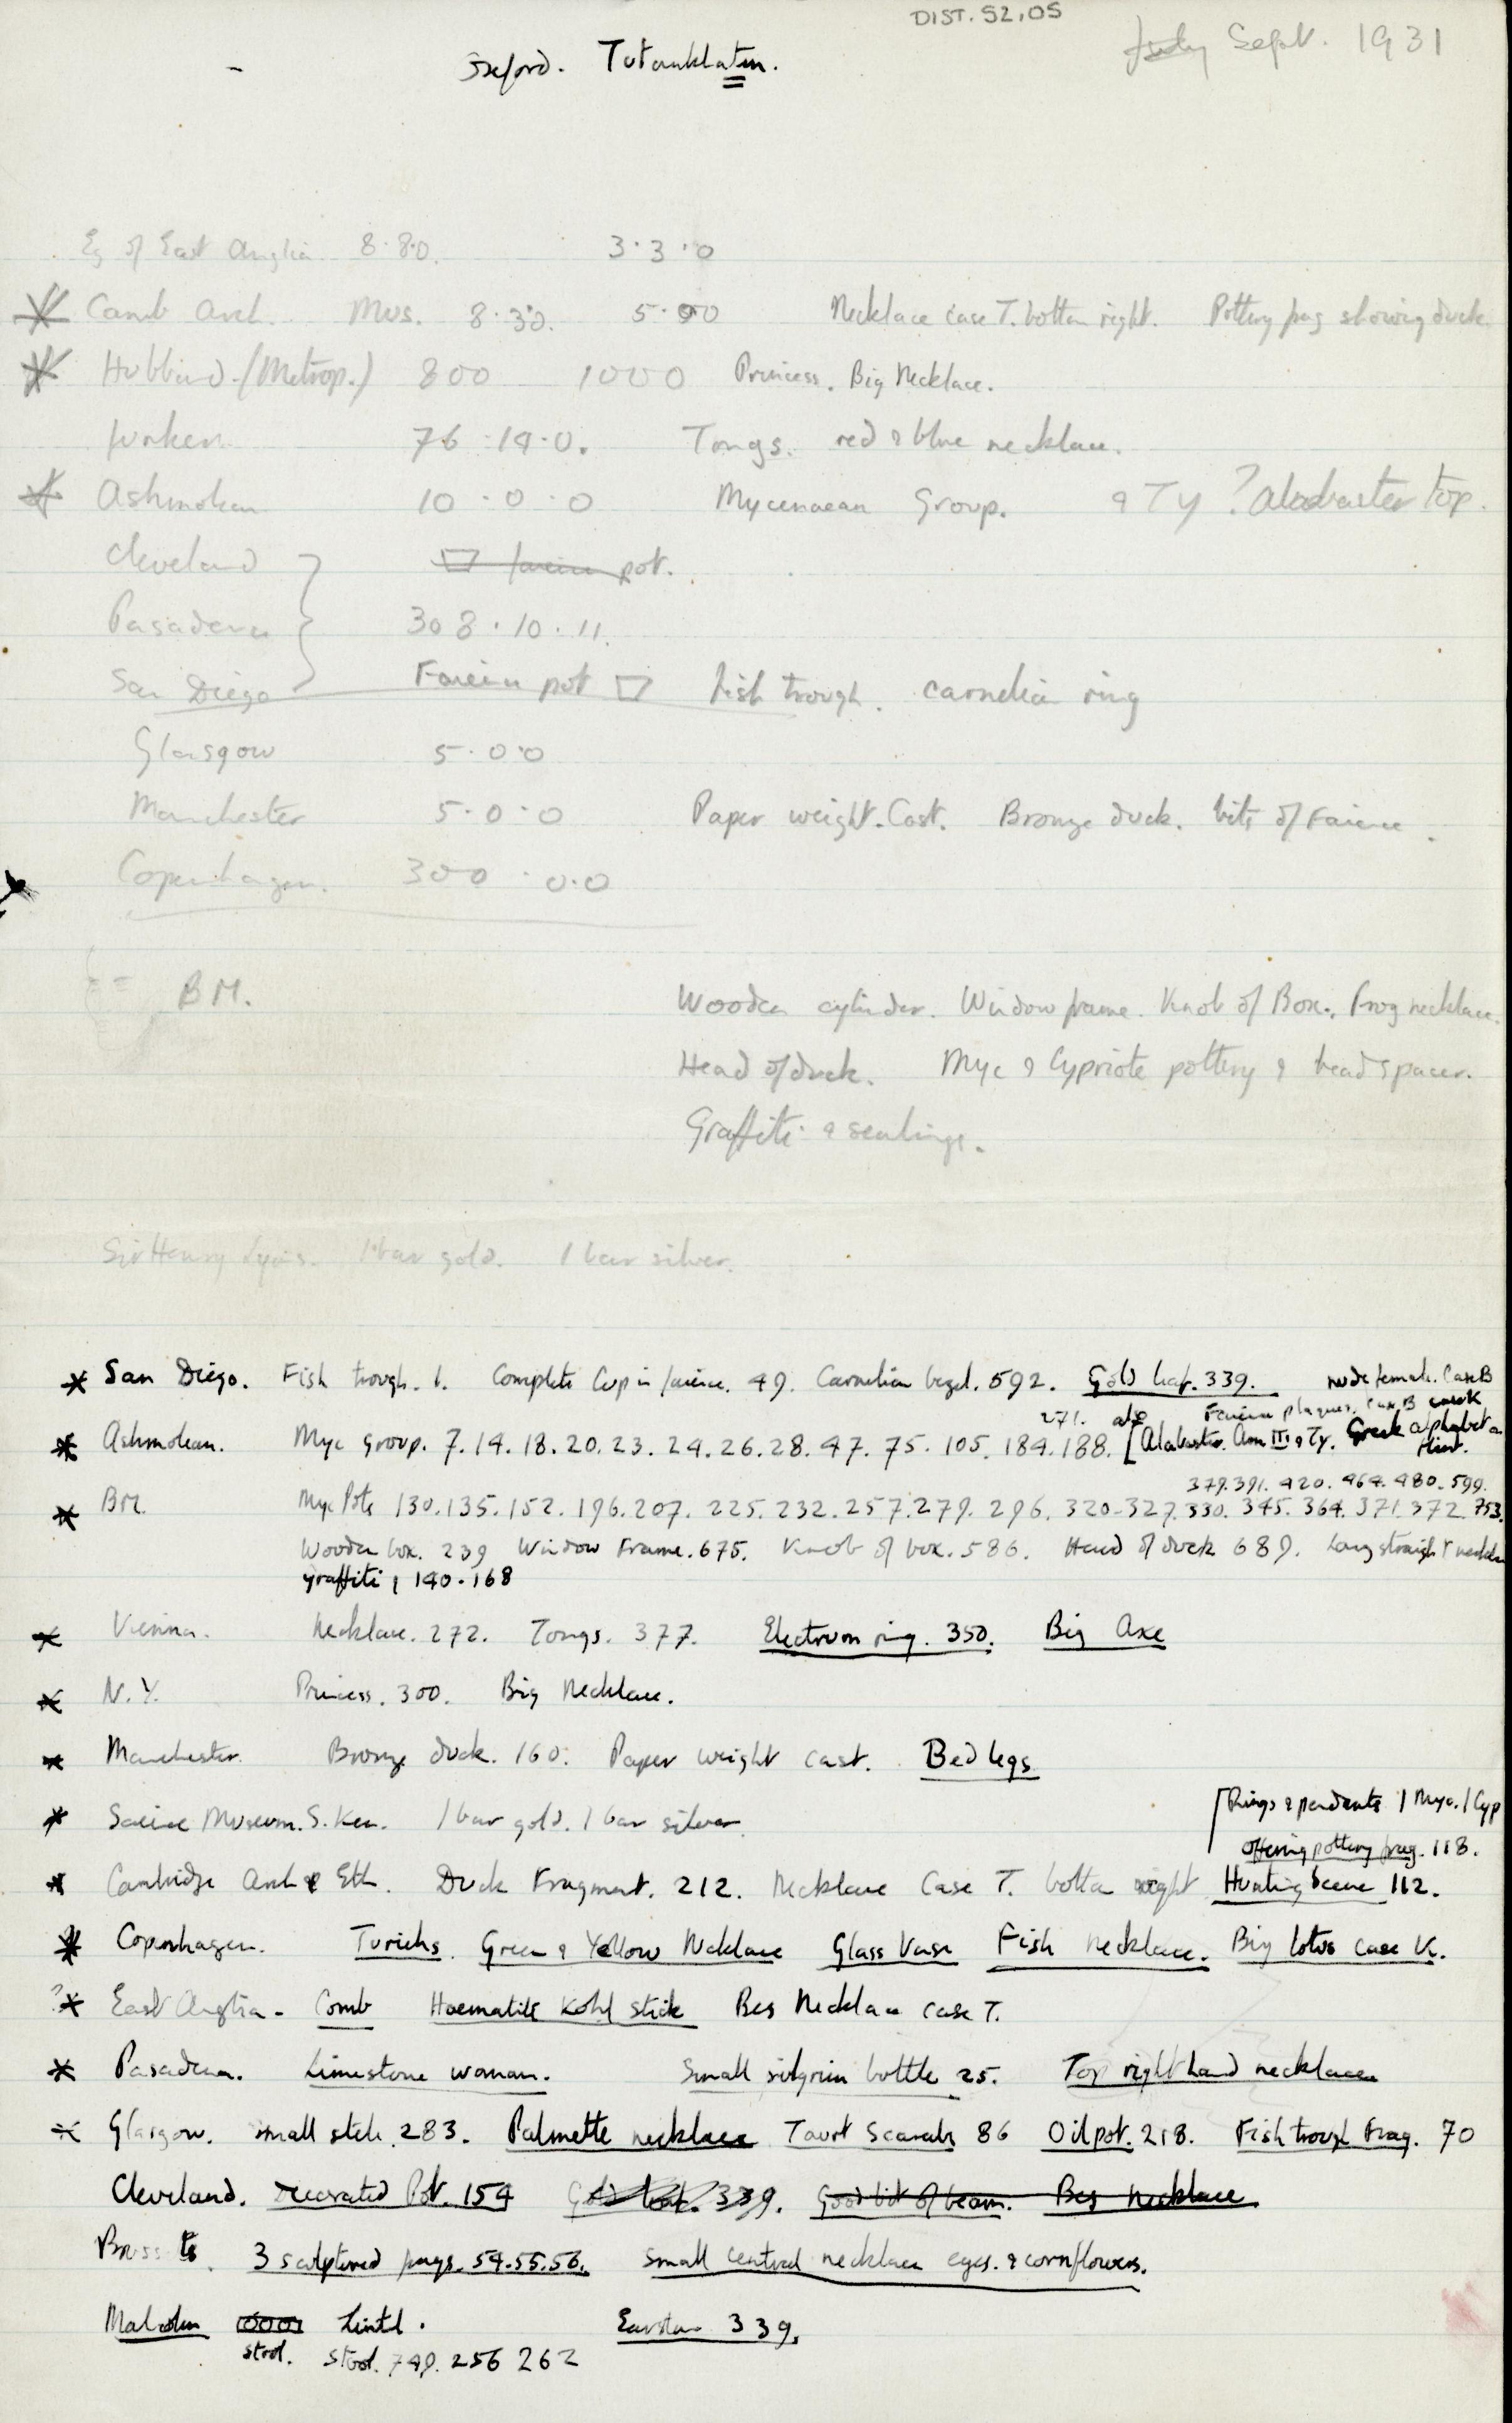 DIST. 52.05
July Sept. 1931
Oxford. Tutankhaten.
Eg of East Anglia 8.8.0. 3.3.0
Camb Arch. Mus. 8.30. 5.00 Necklace Case T. bottom right. Pottery frag showing duck
Hubbard. (Metrop.) 800 1000 Princess. Big Necklace.
Junker. 76.14.0. Tongs. red & blue necklace.
Ashmolean 10.0.0 Mycenaean Group. & Ty ? alabaster top.
Cleveland faience pot.
Pasadena 308.10.11.
San Diego Faience pot Fish trough. carnelian ring
Glasgow 5.0.0
Manchester 5.0.0 Paper weight. Cast. Bronze duck. bits of Faience.
Copenhagen. 300.0.0
BM. Wooden cylinder. Window frame. Knob of Box. Frog necklace.
Head of duck. Myc & Cypriote pottery & bead spacer.
Graffiti & sealings.
Sir Henry Lyons. 1 bar gold. 1 bar silver.
San Diego. Fish trough. 1. Complete Cup in faience. 49. Carnelian bezel. 592. Gold leaf. 339. nude female. Case B
271. also Faience plaques. Case B
Ashmolean. Myc group. 7. 14. 18. 20. 23. 24. 26. 28. 47. 75. 105. 184. 188. [Alabaster. Am III & Ty. Greek alphabet on flint.
379. 391. 420. 464. 480. 599.
BM. Myc Pots 130. 135. 152. 196. 207. 225. 232. 257. 279. 296. 320-327. 330. 345. 364. 371. 372. 753.
Wooden box. 239 Window Frame. 675. Knob of box. 586. Head of duck 689. Long straight necklace
Graffiti 140.168
Vienna. Necklace. 272. Tongs. 377. Electrum ring. 350. Big Axe
N.Y. Princess. 300. Big Necklace.
Manchester. Bronze duck. 160. Paper weight cast. Bed legs
[Rings & pendants 1 Myc. 1 Cyp
Science Museum. S. Ken. 1 bar gold. 1 bar silver.
offering pottery frag. 118.
Cambridge Arch & Eth. Duck Fragment. 212. Necklace Case T. bottom right Hunting Scene 112.
Copenhagen. Green & Yellow Necklace Glass Vase Fish necklace. Big lotus case K.
? East Anglia - Comb Haematite Kohl stick Bes Necklace case T.
Pasadena. Limestone woman. Small pilgrim bottle 25. Top right hand necklace
Glasgow. small stele. 283. Palmette necklace Taurt Scarabs 86 Oil pot. 218. Fish trough Frag. 70
Cleveland. Decorated Pot. 154 Gold leaf. 339. Good bit of beam. Bes Necklace
Brussels. 3 sculptured frags. 54. 55. 56. small central necklace eyes. & cornflowers.
Malcolm Lintel. 339.
stool. Stool. 749. 256 262